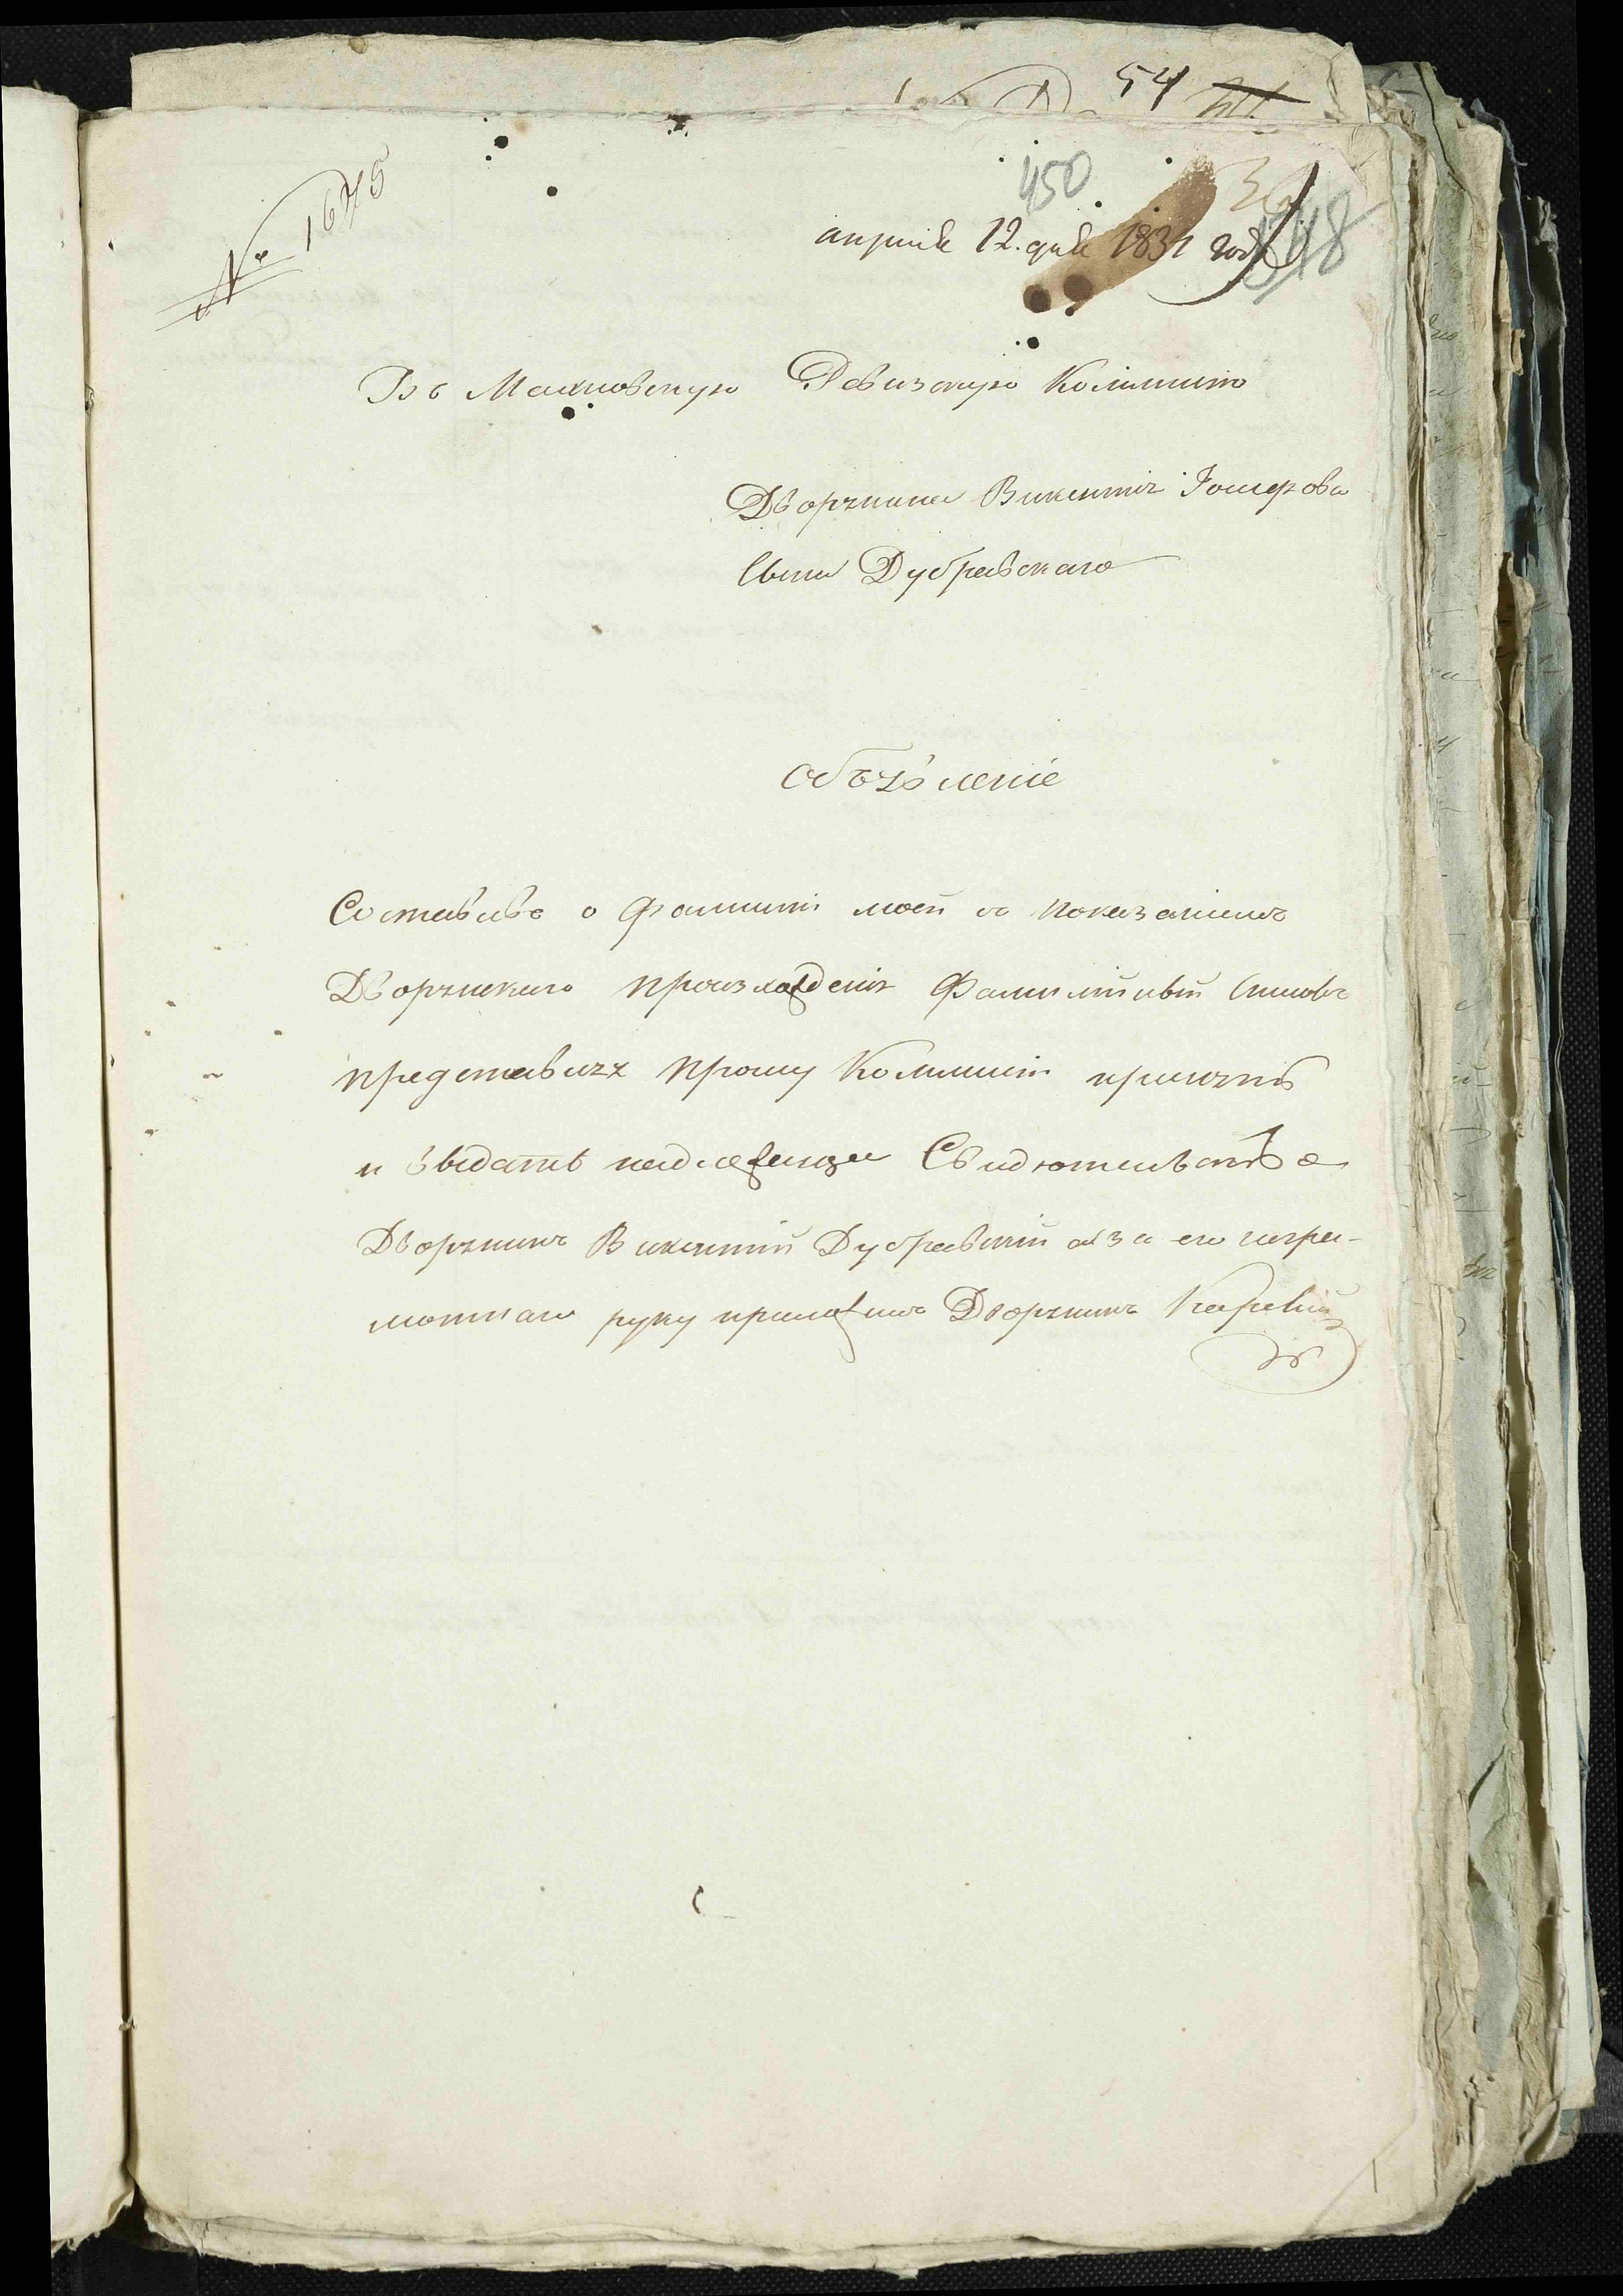 54
450
№ 1675
апреля 12. дня 1831 года
548
Въ Махновскую Ревизскую Комммисію
Дворянина Викентія Іосифова
Сына Дубравскаго
Объявленіе
Составивъ о Фамиліи моей съ показаніемъ
Дворянскаго произхожденія Фамилійный Списокъ
представляя прошу Коммисію принять
и выдать надлежащее Свидетельство
Дворянинъ Викентій Дубравскій а за его негра-
мотнаго руку приложилъ Дворянинъ